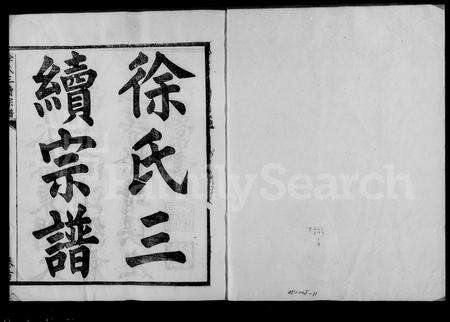 徐氏三
續宗譜
FamilySearch